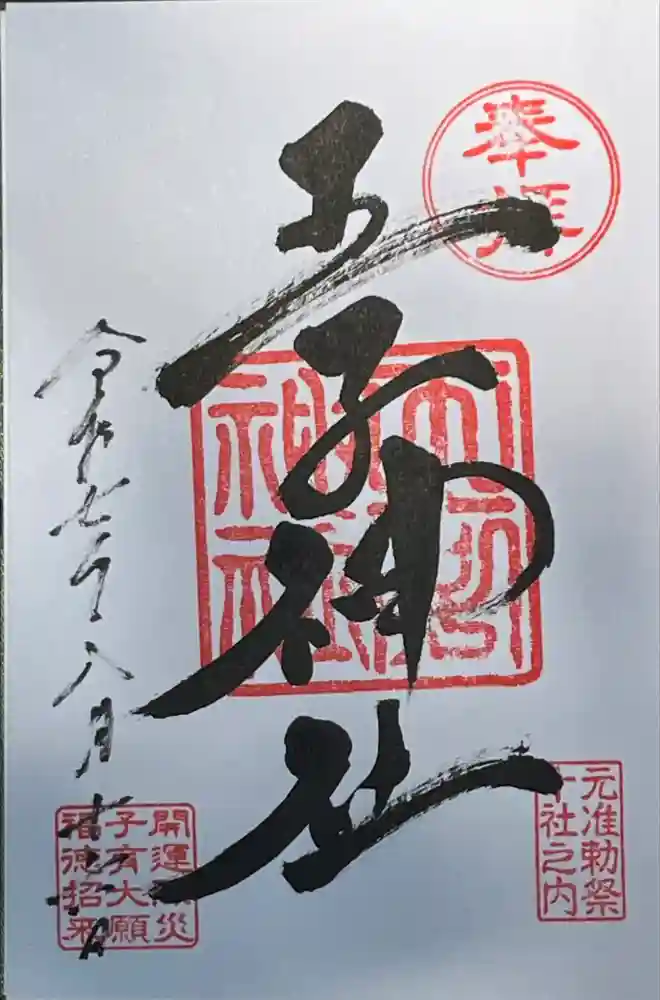 奉拝
王子神社
元准勅祭
十社之内
令和七年八月
開運 災
子育大願
福徳招来